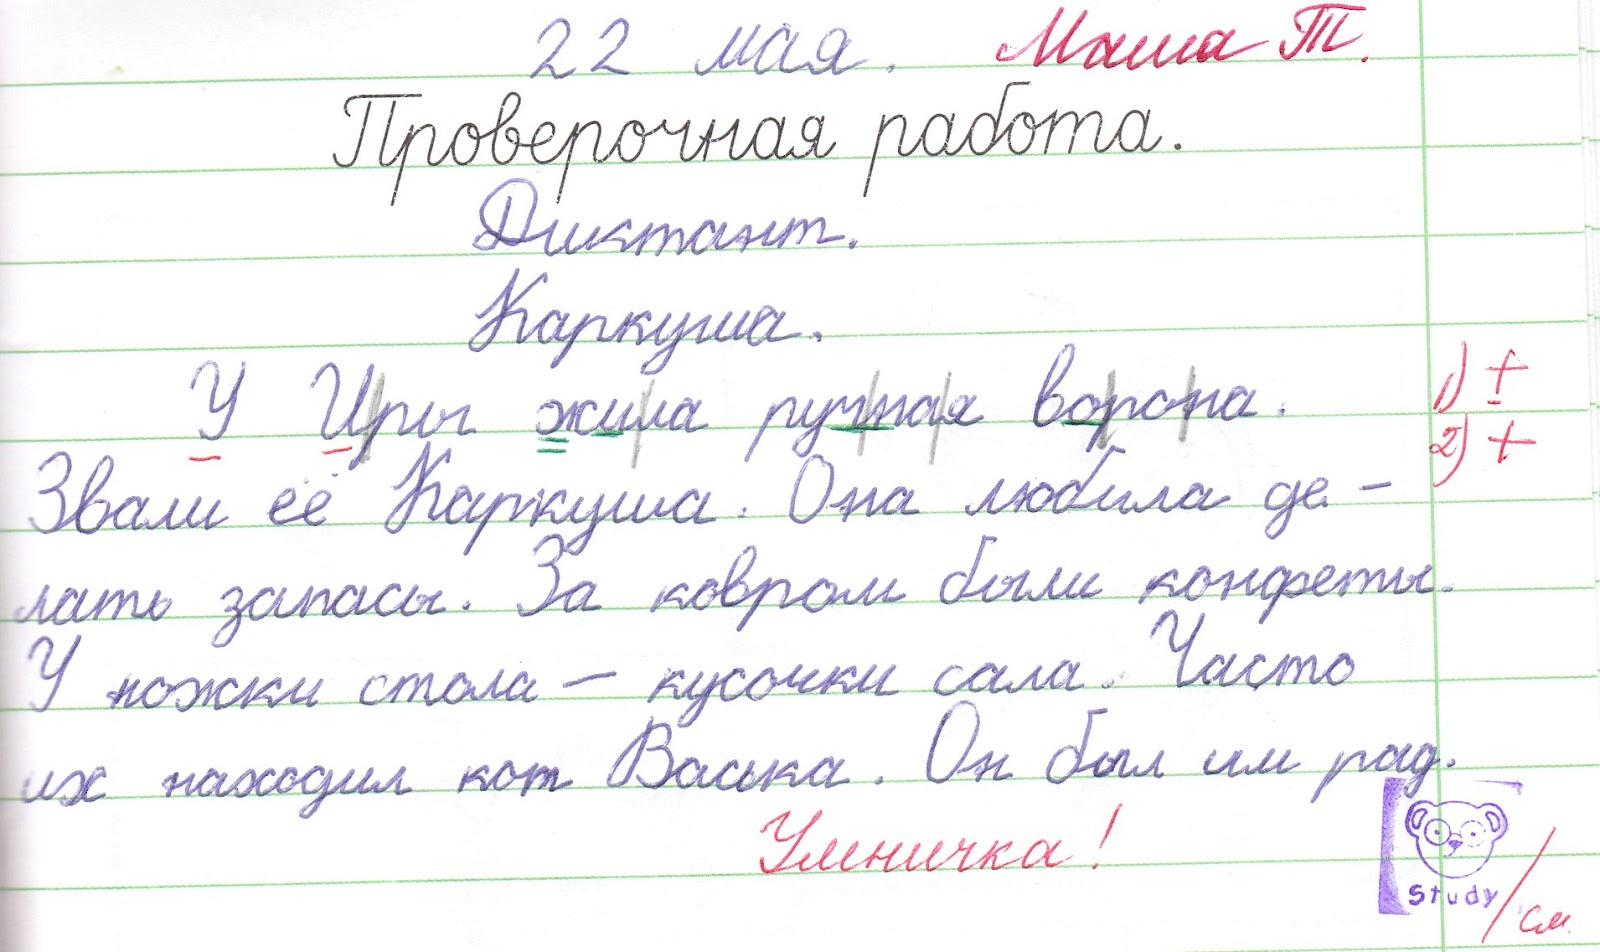 22 мая. Маша Т.
Проверочная работа.
Диктант.
Каркуша.
У Иры жила ручная ворона.
1) +
Звали её Каркуша. Она любила де-
2) +
лать запасы. За ковром были конфеты.
У ножки стола – кусочки сала. Часто
их находил кот Васька. Он был им рад.
Умничка!
Study
/см.